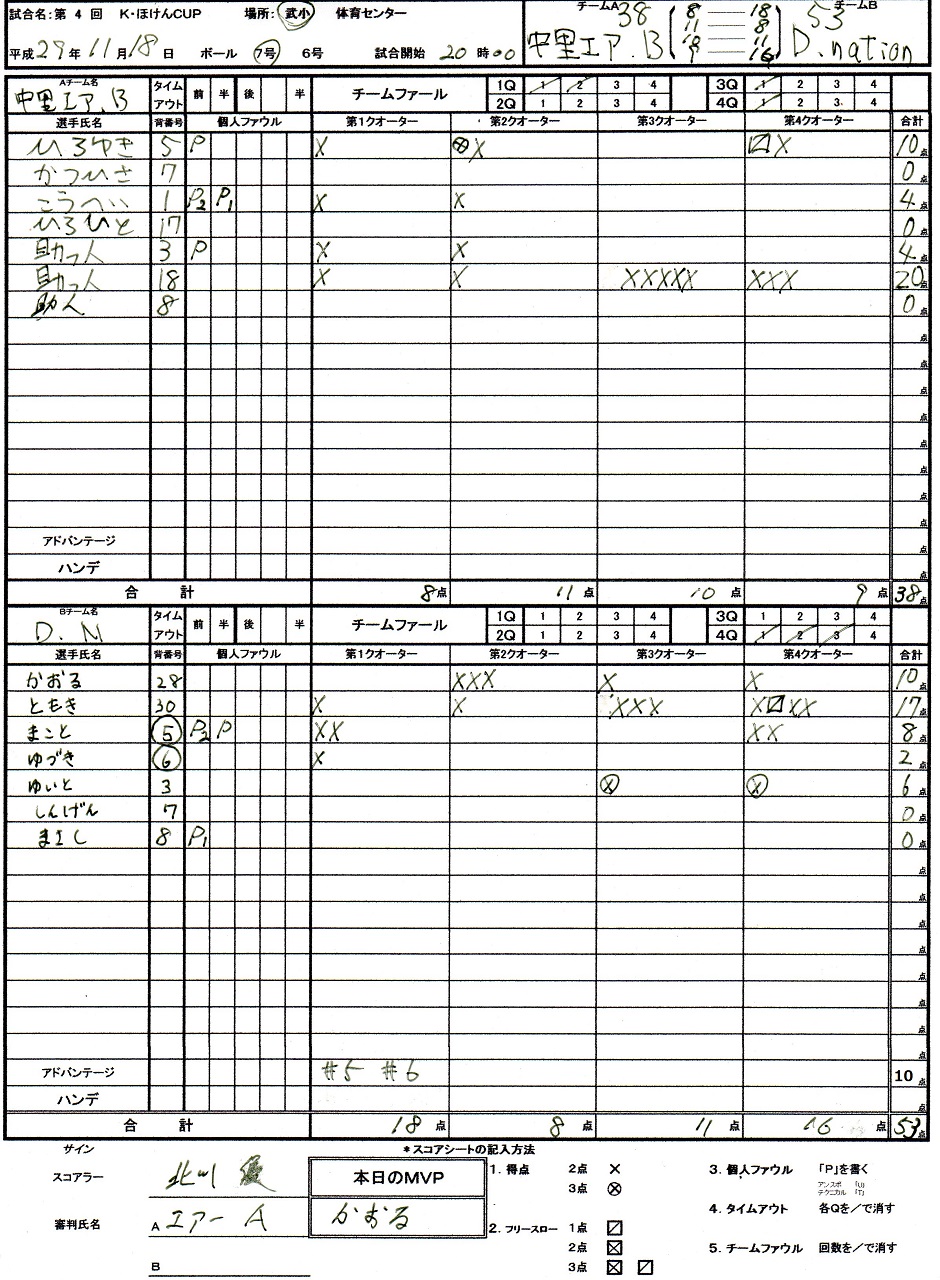 試合名:第 4 回 K・ほけんCUP 場所: 武小 体育センター
平成29年11月18日 ボール 7号 6号 試合開始 20時00
チームA 38 8 — 18 53 チームB
11 — 8
中里エア.B 10 — 11 D.nation
9 — 16
Aチーム名 中里エア.B タイムアウト 前 半 後 半 チームファール 1Q 1 2 3 4 3Q 1 2 3 4
2Q 1 2 3 4 4Q 1 2 3 4
選手氏名 背番号 個人ファウル 第1クオーター 第2クオーター 第3クオーター 第4クオーター 合計
ひろゆき 5 P X ⊗X ☑X 10点
かつひさ 7 0点
こうへい 1 P2 P1 X X 4点
ひろひと 17 0点
助っ人 3 P X X 4点
助っ人 18 X X XXXXX XXX 20点
助人 8 0点
点
点
点
点
点
点
点
点
アドバンテージ 点
ハンデ 点
合 計 8点 11点 10点 9点 38点
Bチーム名 D.N タイムアウト 前 半 後 半 チームファール 1Q 1 2 3 4 3Q 1 2 3 4
2Q 1 2 3 4 4Q 1 2 3 4
選手氏名 背番号 個人ファウル 第1クオーター 第2クオーター 第3クオーター 第4クオーター 合計
かおる 28 XXX X X 10点
ともき 30 X X XXX X☑XX 17点
まこと 5 P2 P XX XX 8点
ゆづき 6 X 2点
ゆいと 3 ⊗ ⊗ 6点
しんげん 7 0点
8 P1 0点
点
点
点
点
点
点
点
点
アドバンテージ #5 #6 10点
ハンデ 点
合 計 18点 8点 11点 16点 53点
サイン *スコアシートの記入方法
スコアラー 北川 優 本日のMVP 1. 得点 2点 × 3. 個人ファウル 「P」を書く
3点 ⊗ アンスポ 「U」
テクニカル 「T」
審判氏名 A エアー A かおる 4. タイムアウト 各Qを/で消す
2. フリースロー 1点 ☑
2点 ☒ 5. チームファウル 回数を/で消す
B 3点 ☒ ☑